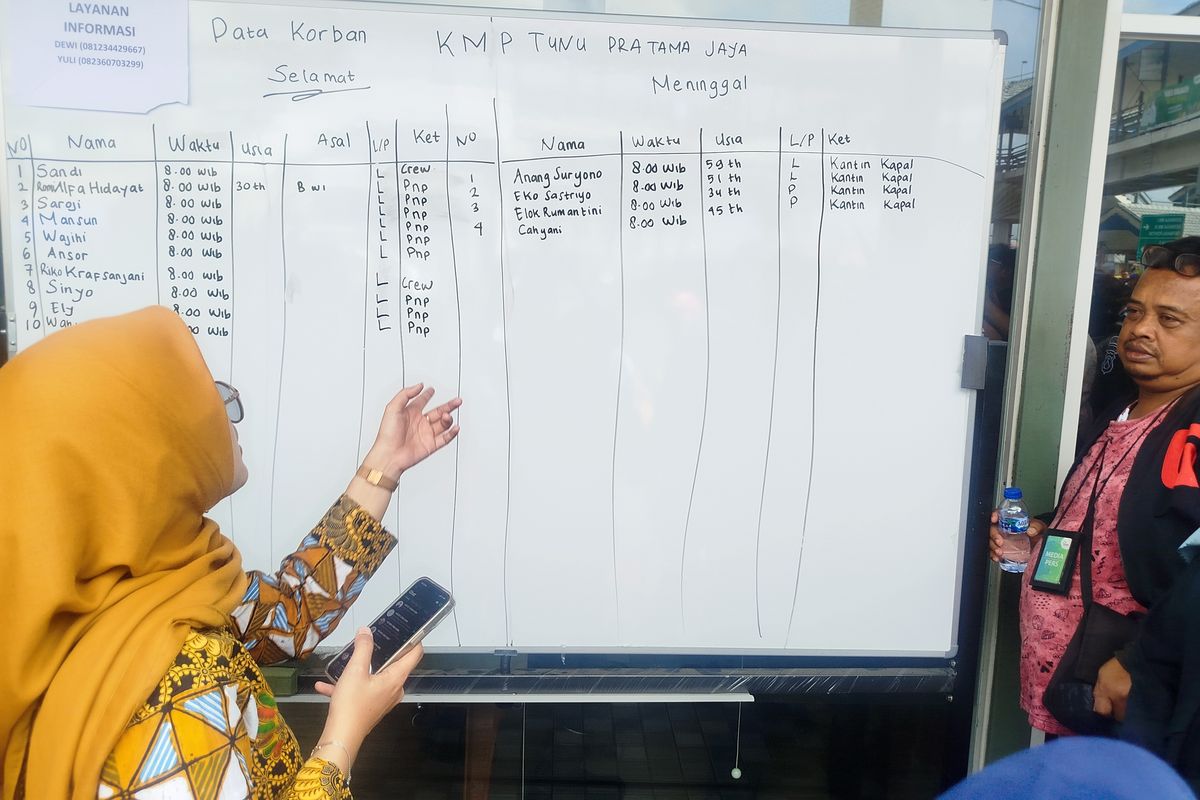 LAYANAN
INFORMASI
DEWI (081234429667)
YULI (082360703299)
Data Korban KMP TUNU PRATAMA JAYA
Selamat
NO Nama Waktu Usia Asal L/P Ket
1 Sandi 8.00 Wib L Crew
2 Romi Alfa Hidayat 8.00 Wib 30 th Bwi L Pnp
3 Saroji 8.00 Wib L Pnp
4 Mansun 8.00 Wib L Pnp
5 Wajihi 8.00 Wib L Pnp
6 Ansor 8.00 Wib L Pnp
7 Riko Krafsanjani 8.00 Wib L Pnp
8 Sinyo 8.00 Wib L Crew
9 Ely 8.00 Wib L Pnp
10 L Pnp
L Pnp
Meninggal
NO Nama Waktu Usia L/P Ket
1 Anang Suryono 8.00 Wib 59 th L Kantin Kapal
2 Eko Sastriyo 8.00 Wib 51 th L Kantin Kapal
3 Elok Rumantini 8.00 Wib 34 th P Kantin Kapal
4 Cahyani 8.00 Wib 45 th P Kantin Kapal
MEDIA
PERS